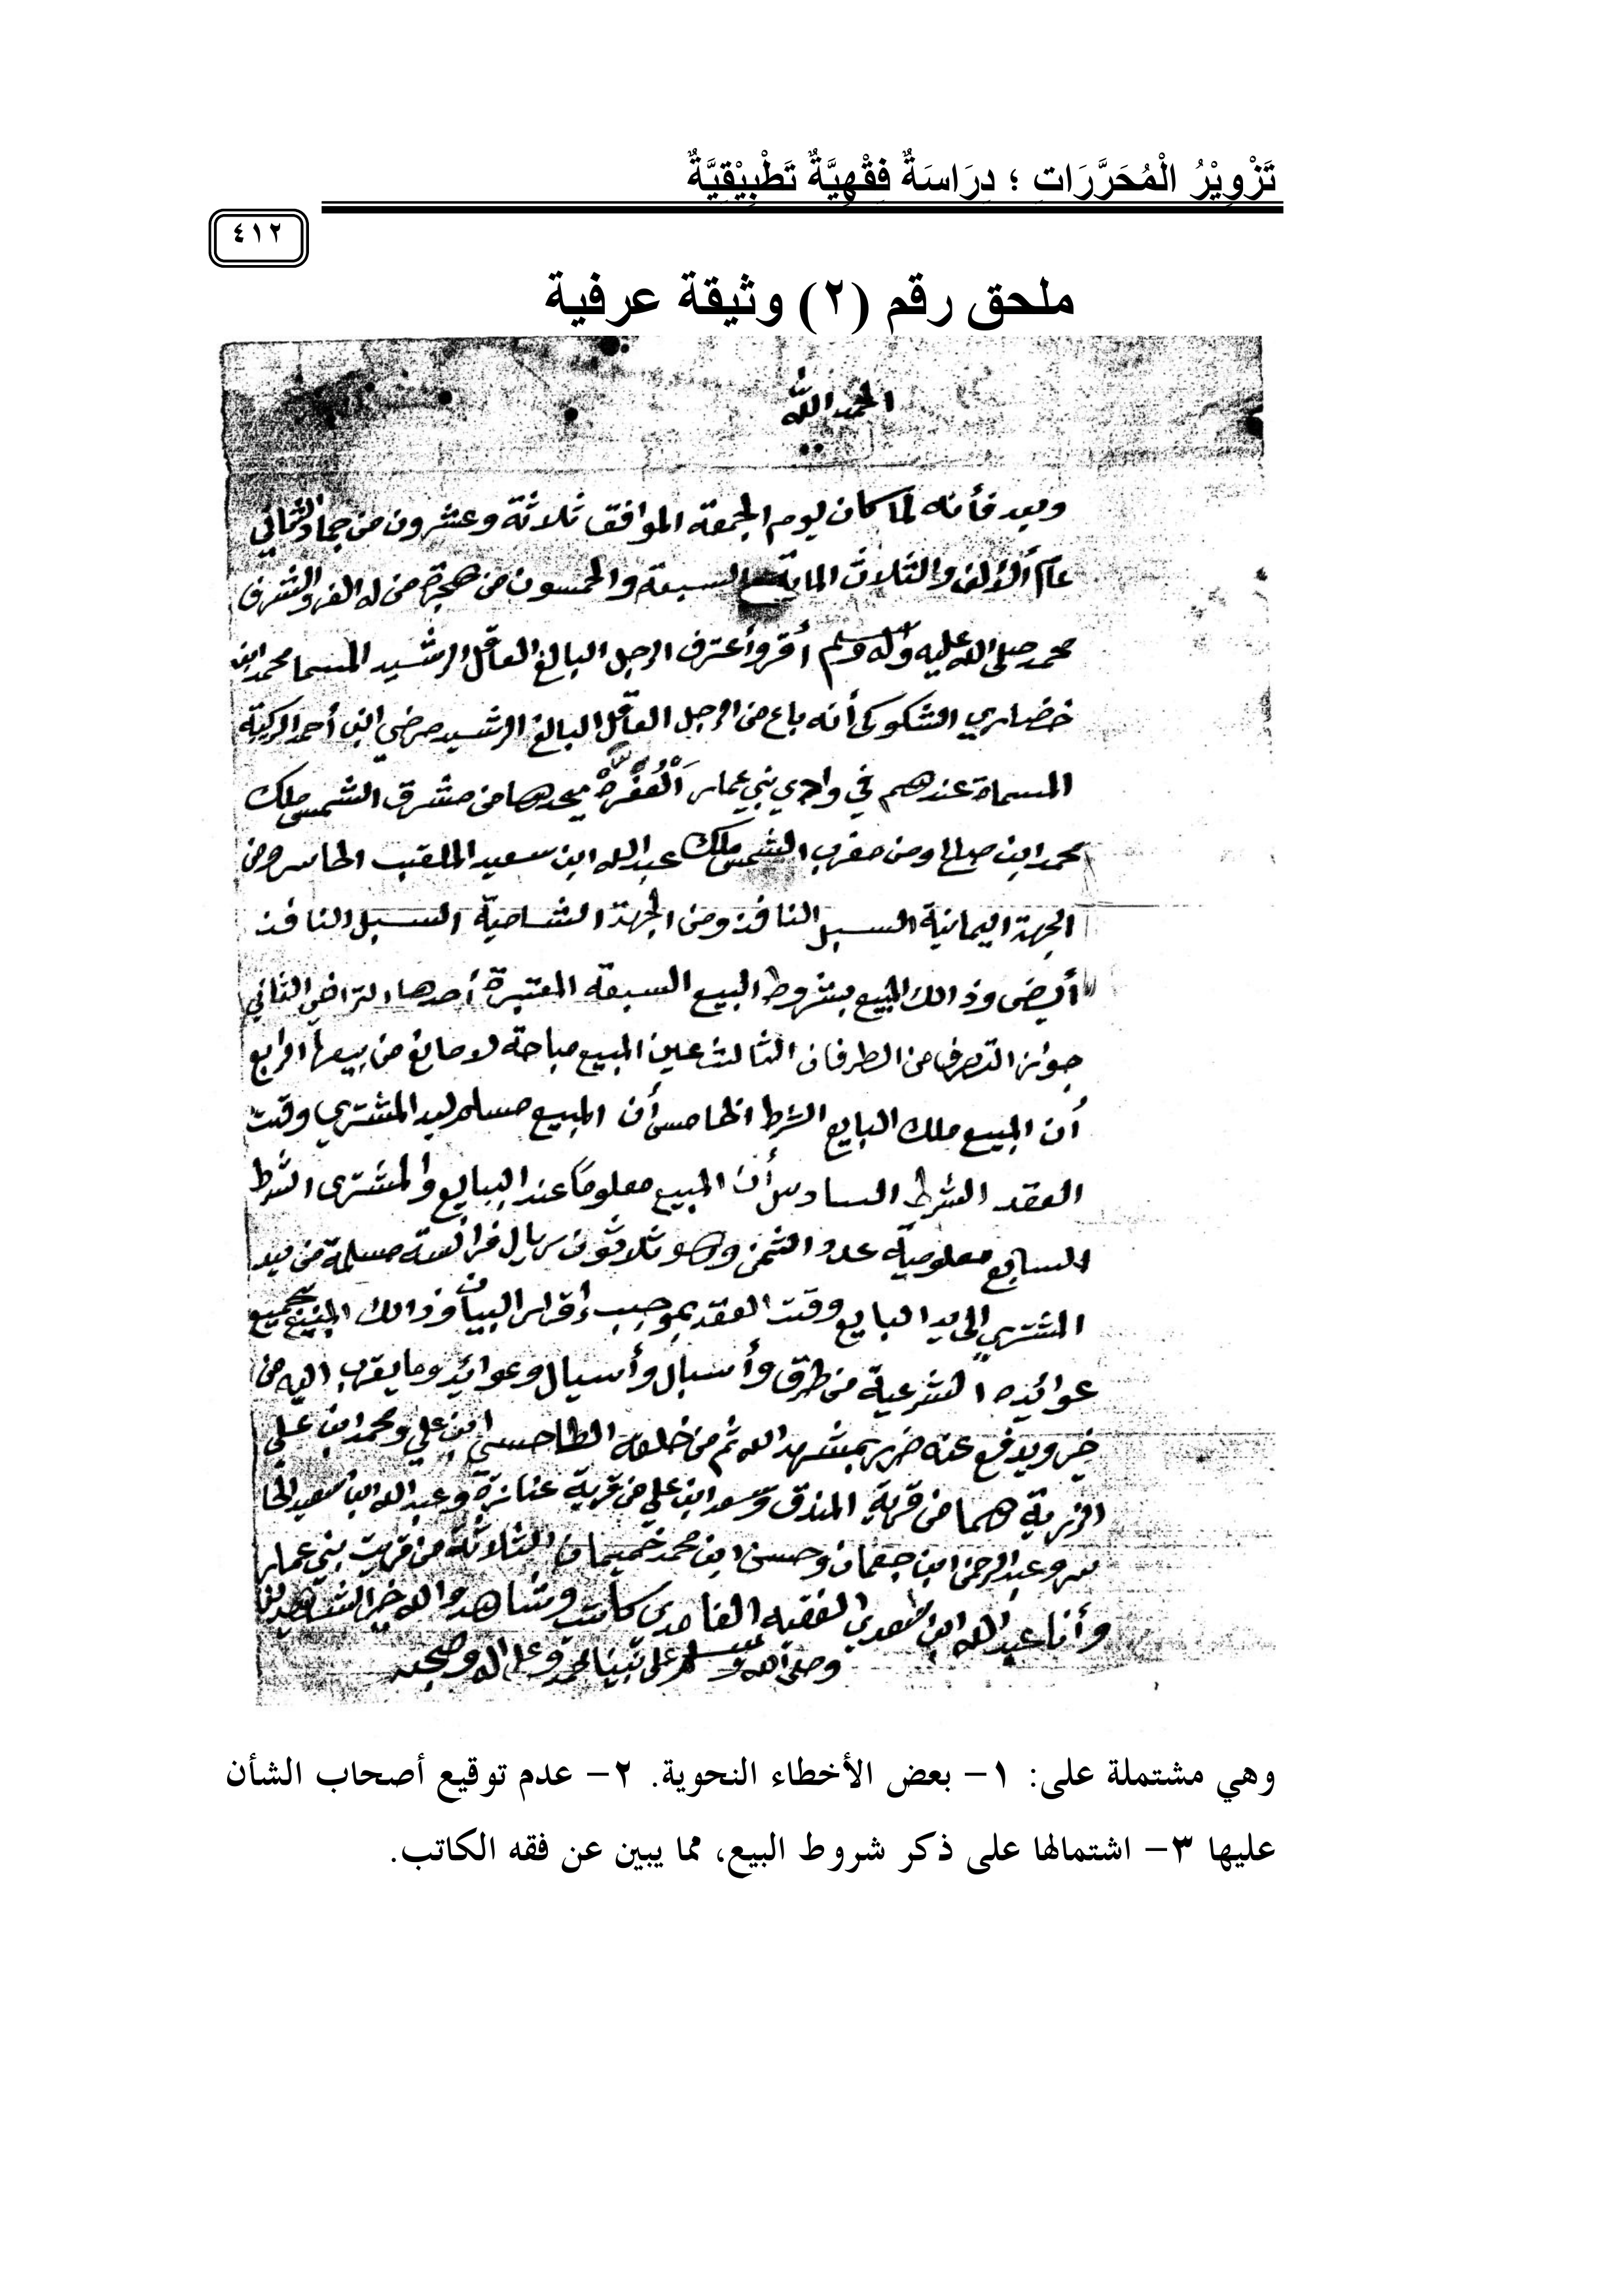 تَزْوِيْرُ الْمُحَرَّرَاتِ ؛ دِرَاسَةٌ فِقْهِيَّةٌ تَطْبِيْقِيَّةٌ
٤١٢
ملحق رقم (٢) وثيقة عرفية
الحمد الله
وبعد فأنه لما كان ليوم الجمعة الموافق ثلاثة وعشرون من جماد الثاني
عام الألف والثلاث الماية السبعة والخمسون من هجرة من له العز والشرف
محمد صلى الله عليه وآله وسلم أقر وأعترف الرجل البالغ العاقل الرشيد المسما محمد ابن
خضاري الشكوكي أنه باع من الرجل العاقل البالغ الرشيد مرضي ابن أحمد الركبة
المسماة عندهم في وادي بني عمار يحدها من مشرق الشمس ملك
محمد ابن صالح ومن مغرب الشمس ملك عبدالله ابن سعيد الملقب الخاسر ومن
الجهة اليمانية السبل النافذ ومن الجهة الشامية السبل النافذ
أيضى وذالك المبيع بشروط البيع السبعة المعتبرة أحدها التراضي الثاني
جوائز التصرف من الطرفان الثالث عين المبيع مباحة لا مانع من بيعها الرابع
أن المبيع ملك البايع الشرط الخامس أن المبيع مسلم ليد المشتري وقت
العقد الشرط السادس أن المبيع معلوماً عند البايع والمشترى الشرط
السابع معلومية عدد الثمن وهو ثلاثون ريال فرانسة مسلمة من يد
المشتري إلى يد البايع وقت العقد بموجب إقرار البيان وذالك المبيع بجميع
عوائده الشرعية من طرق وأسبال وأسيال وعوائد وما يقرب اليه من
خير ويدفع عنه ضرر بمشهد الله ثم من خلقه حسن ابن علي ومحمد ابن علي
هما من قرية المندق وسعد ابن علي من قرية عنازة وعبدالله ابن سعيد الخا
سر وعبدالرحمن ابن جمعان وحسن ابن محمد الثلاثة من قريت بني عمار
وأنا عبدالله ابن الفقيه الغامدي كاتب وشاهد والله خير الشاهدين
وصلى الله وسلم على نبينا محمد وعلى اله وصحبه
وهي مشتملة على: ١– بعض الأخطاء النحوية. ٢– عدم توقيع أصحاب الشأن
عليها ٣– اشتمالها على ذكر شروط البيع، مما يبين عن فقه الكاتب.